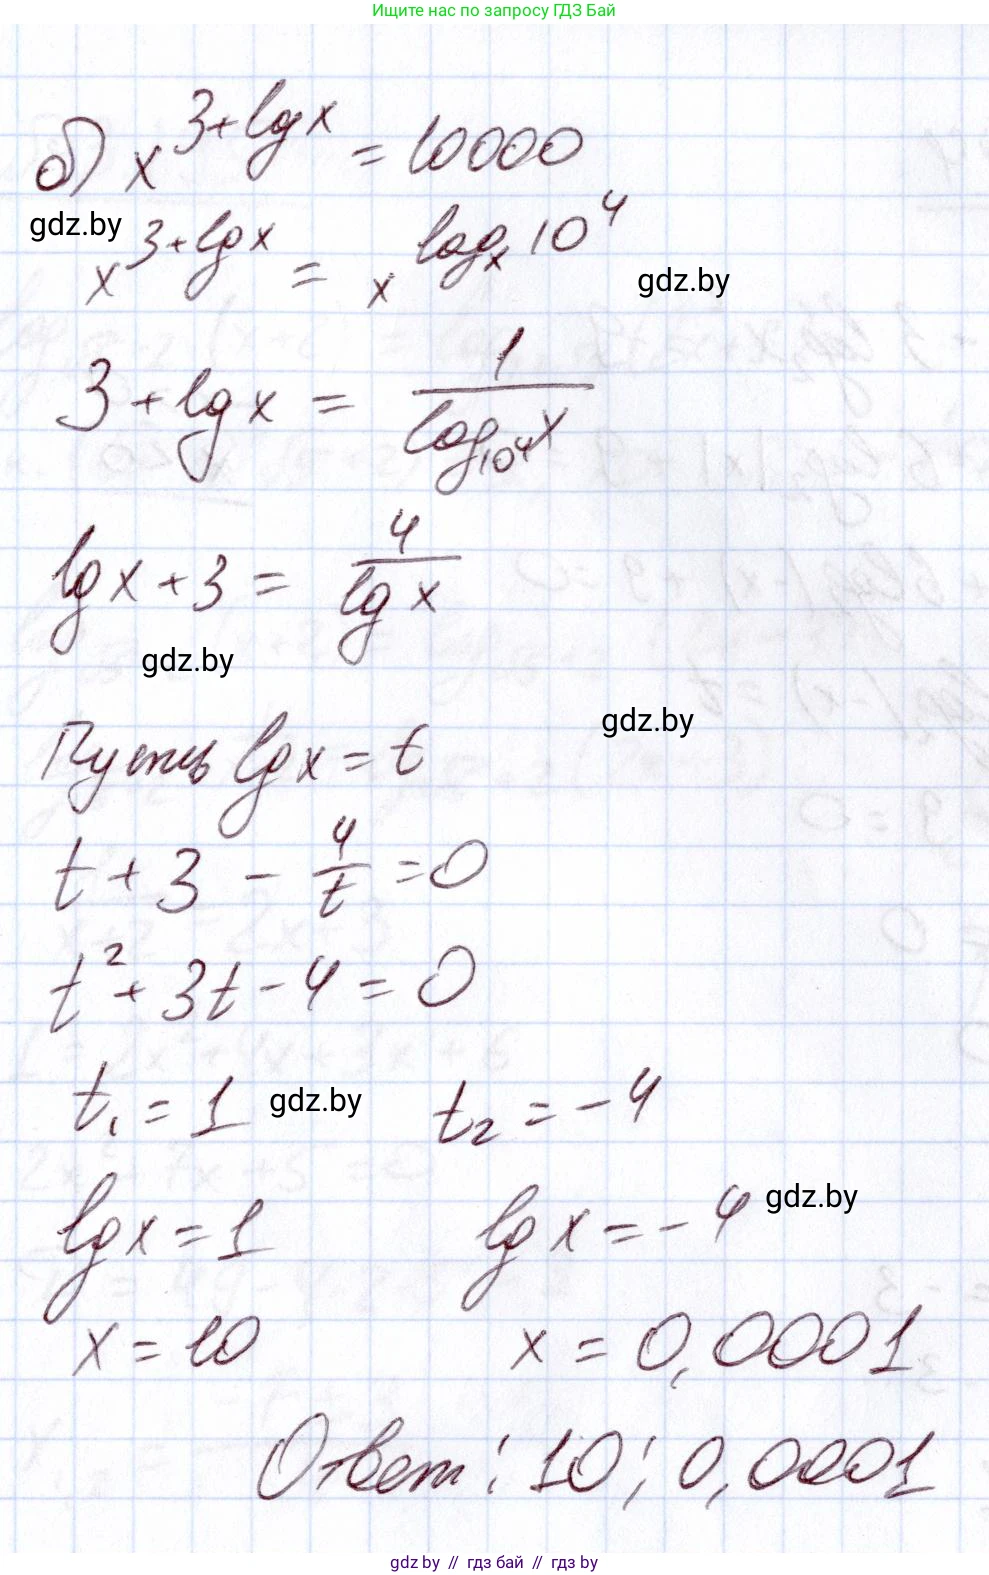 Ищите нас по запросу ГДЗ Бай
б) x^(3+lgx) = 10000
gdz.by
x^(3+lgx) = x^(log_x 10^4)
gdz.by
3 + lgx = 1/(log_(10^4) x)
lgx + 3 = 4/(lg x)
gdz.by
gdz.by
Пусть lgx = t
t + 3 - 4/t = 0
t² + 3t - 4 = 0
t₁ = 1 gdz.by t₂ = -4
lgx = 1 lgx = -4 gdz.by
x = 10 x = 0,0001
Ответ: 10; 0,0001
gdz.by // гдз бай // гдз by